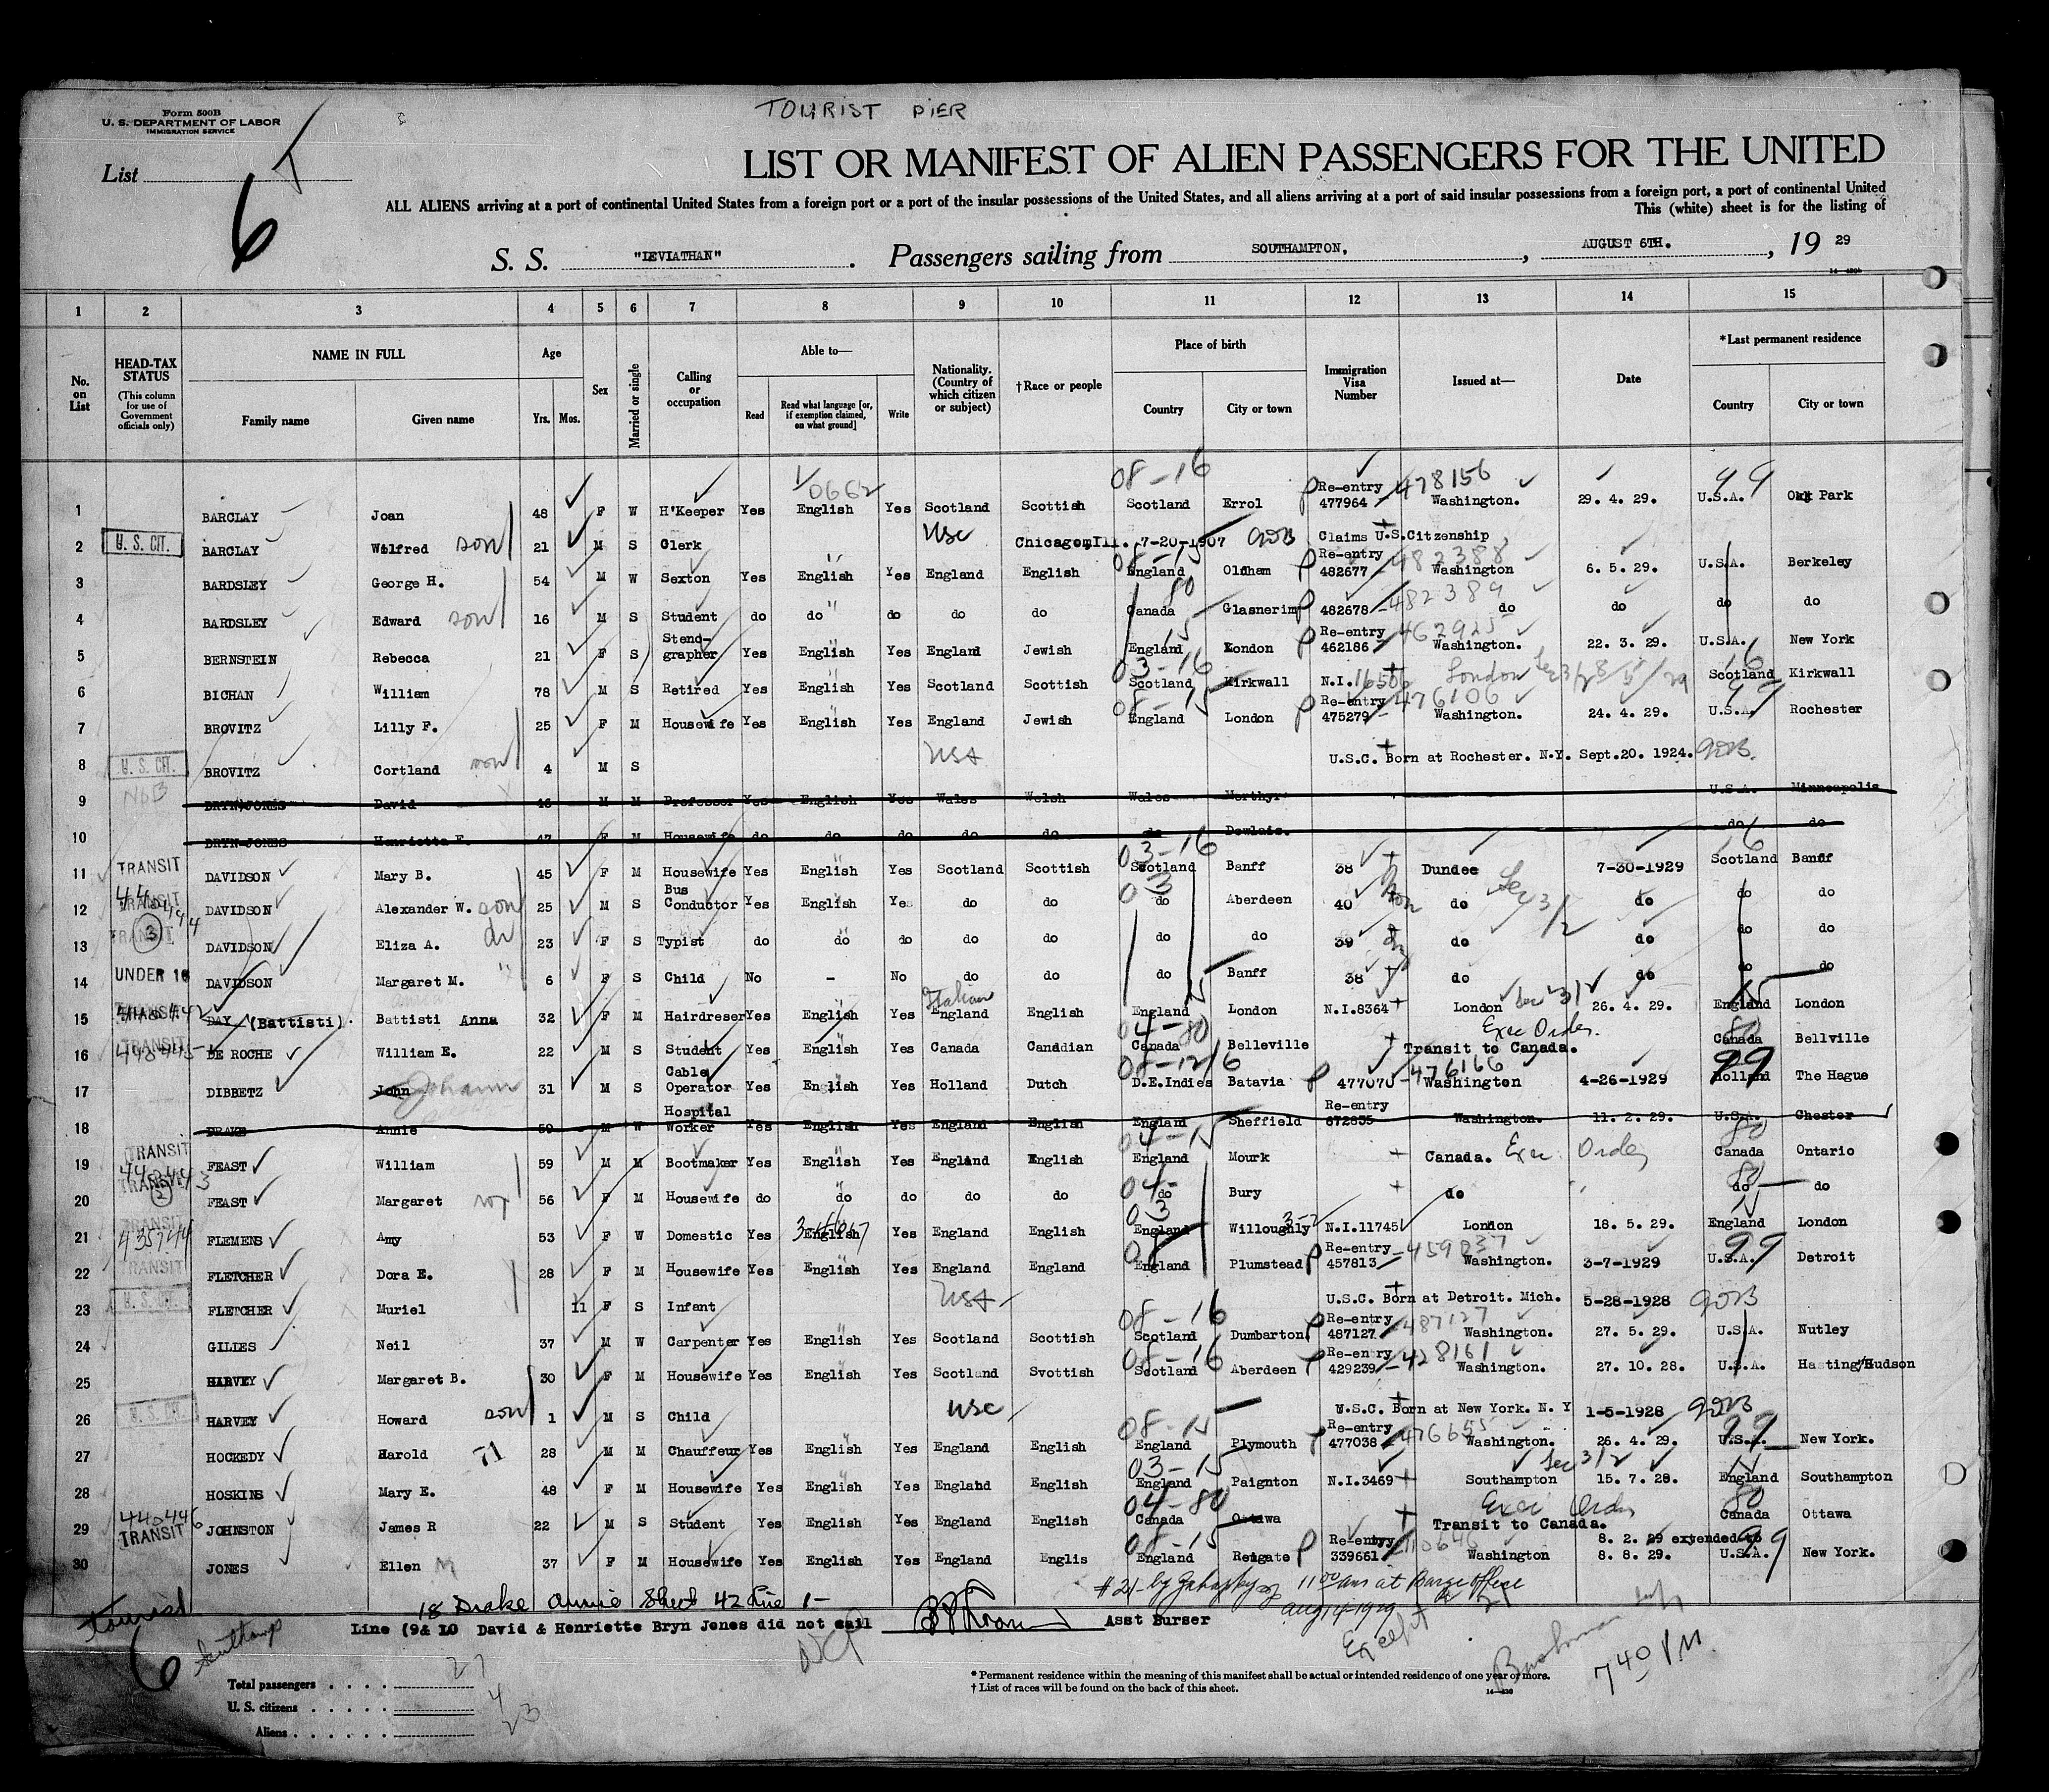 TOURIST PIER
Form 500B
U. S. DEPARTMENT OF LABOR
IMMIGRATION SERVICE
List
6
LIST OR MANIFEST OF ALIEN PASSENGERS FOR THE UNITED
ALL ALIENS arriving at a port of continental United States from a foreign port or a port of the insular possessions of the United States, and all aliens arriving at a port of said insular possessions from a foreign port, a port of continental United
This (white) sheet is for the listing of
S. S. "LEVIATHAN" . Passengers sailing from SOUTHAMPTON, , AUGUST 6TH. , 19 29
1 2 3 4 5 6 7 8 9 10 11 12 13 14 15
No. on List HEAD-TAX STATUS (This column for use of Government officials only) NAME IN FULL Family name Given name Age Yrs. Mos. Sex Married or single Calling or occupation Able to— Read Read what language [or, if exemption claimed, on what ground] Write Nationality. (Country of which citizen or subject) †Race or people Place of birth Country City or town Immigration Visa Number Issued at— Date *Last permanent residence Country City or town
08-16 478156 99
1 BARCLAY Joan 48 F W H'Keeper Yes English Yes Scotland Scottish Scotland Errol Re-entry 477964 Washington. 29. 4. 29. U.S.A. Oak Park
2 U. S. CIT. BARCLAY Wilfred son 21 M S Clerk USC Chicago,Ill. 7-20-1907 Claims U.S.Citizenship
3 BARDSLEY George H. 54 M W Sexton Yes English Yes England English England Oldham Re-entry 482677 482388 Washington 6. 5. 29. U.S.A. Berkeley
4 BARDSLEY Edward son 16 M S Student do do do do do Canada Glasnerim 482678 482389 do do do do
5 BERNSTEIN Rebecca 21 F S Steno-grapher Yes English Yes England Jewish England London Re-entry 462186 462925 Washington. 22. 3. 29. U.S.A. New York
6 BICHAN William 78 M S Retired Yes English Yes Scotland Scottish Scotland Kirkwall N.I. London Scotland Kirkwall
7 BROVITZ Lilly F. 25 F M Housewife Yes English Yes England Jewish England London Re-entry 475279 476106 Washington. 24. 4. 29. U.S.A. Rochester
8 U. S. CIT. BROVITZ Cortland son 4 M S U.S.C. Born at Rochester. N.Y. Sept.20. 1924.
9 BRYN-JONES David M M Professor Yes English Yes Wales Welsh Wales Merthyr U.S.A. Minneapolis
10 BRYN-JONES Henrietta E. 47 F M Housewife do do do do do do Dowlais. do do
11 TRANSIT DAVIDSON Mary B. 45 F M Housewife Yes English Yes Scotland Scottish Scotland Banff 38 Dundee 7-30-1929 Scotland Banff
12 TRANSIT DAVIDSON Alexander W. son 25 M S Bus Conductor Yes English Yes do do do Aberdeen 40 do do do do
13 TRANSIT DAVIDSON Eliza A. 23 F S Typist do do do do do do do 39 do do do do
14 UNDER 16 DAVIDSON Margaret M. 6 F S Child No - No do do do Banff 38 do do do do
15 TRANSIT DAY (Battisti) Battisti Anna 32 F M Hairdreser Yes English Yes Italian England English England London N.I.8364 London 26. 4. 29. England London
16 TRANSIT DE ROCHE William E. 22 M S Student Yes English Yes Canada Canadian Canada Belleville Exec Order. Transit to Canada. Canada Bellville
17 DIBBETZ John Johann 31 M S Cable Operator Yes English Yes Holland Dutch D.E.Indies Batavia 477070 476166 Washington 4-26-1929 Holland The Hague
18 DRAKE Annie 59 M W Hospital Worker Yes English Yes England English England Sheffield Re-entry 672835 Washington. 11. 2. 29. U.S.A. Chester
19 TRANSIT FEAST William 59 M M Bootmaker Yes English Yes England English England Mourk Canada. Exec Order Canada Ontario
20 TRANSIT FEAST Margaret 56 F M Housewife do do do do do do Bury do do do
21 TRANSIT FLEMENS Amy 53 F W Domestic Yes English Yes England English England Willoughly N.I.11745 London 18. 5. 29. England London
22 TRANSIT FLETCHER Dora E. 28 F M Housewife Yes English Yes England England England Plumstead Re-entry 457813 459037 Washington. 3-7-1929 U.S.A. Detroit
23 U. S. CIT. FLETCHER Muriel 11 F S Infant U.S.C. Born at Detroit. Mich. 5-28-1928
24 GILIES Neil 37 M W Carpenter Yes English Yes Scotland Scottish Scotland Dumbarton Re-entry 487127 487127 Washington. 27. 5. 29. U.S.A. Nutley
25 HARVEY Margaret B. 30 F M Housewife Yes English Yes Scotland Svottish Scotland Aberdeen Re-entry 429239 428161 Washington. 27. 10. 28. U.S.A. Hasting/Hudson
26 U. S. CIT. HARVEY Howard son 1 M S Child USC U.S.C. Born at New York. N. Y 1-5-1928
27 HOCKEDY Harold 71 28 M M Chauffeur Yes English Yes England English England Plymouth Re-entry 477038 476655 Washington. 26. 4. 29. U.S.A. New York.
28 HOSKINS Mary E. 48 F M Housewife Yes English Yes England English England Paignton N.I.3469 Southampton 15. 7. 28. England Southampton
29 440446 TRANSIT JOHNSTON James R 22 M S Student Yes English Yes England English Canada Ottawa Exec Order Transit to Canada. Canada Ottawa
30 JONES Ellen M 37 F M Housewife Yes English Yes England Englis England Reigate Re-entyy 339661 Washington 8. 2. 29 extended to 8. 8. 29. U.S.A. New York.
18 Drake Annie Sheet 42 line 1-
Line (9& 10 David & Henriette Bryn Jones did not sail Asst Burser
Tourist
6
Southamp
Except 21
740 PM.
Total passengers . . . . 27
U. S. citizens . . . . . 4
Aliens . . . . . . 23
* Permanent residence within the meaning of this manifest shall be actual or intended residence of one year or more.
† List of races will be found on the back of this sheet.